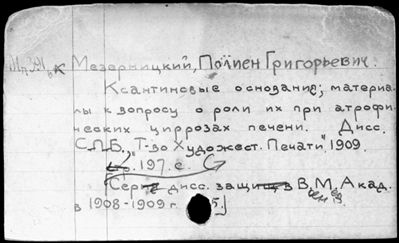 Мезерницкий, Полиен Григорьевич.
Ксантиновые основания; материа-
лы к вопросу о роли их при атрофи-
ческих циррозах печени. Дисс.
С.П.Б., "Т-во Художест. Печати", 1909.
197. с.
[Серия дисс. защищ. в В. М. Акад.
в 1908-1909 г. 5]